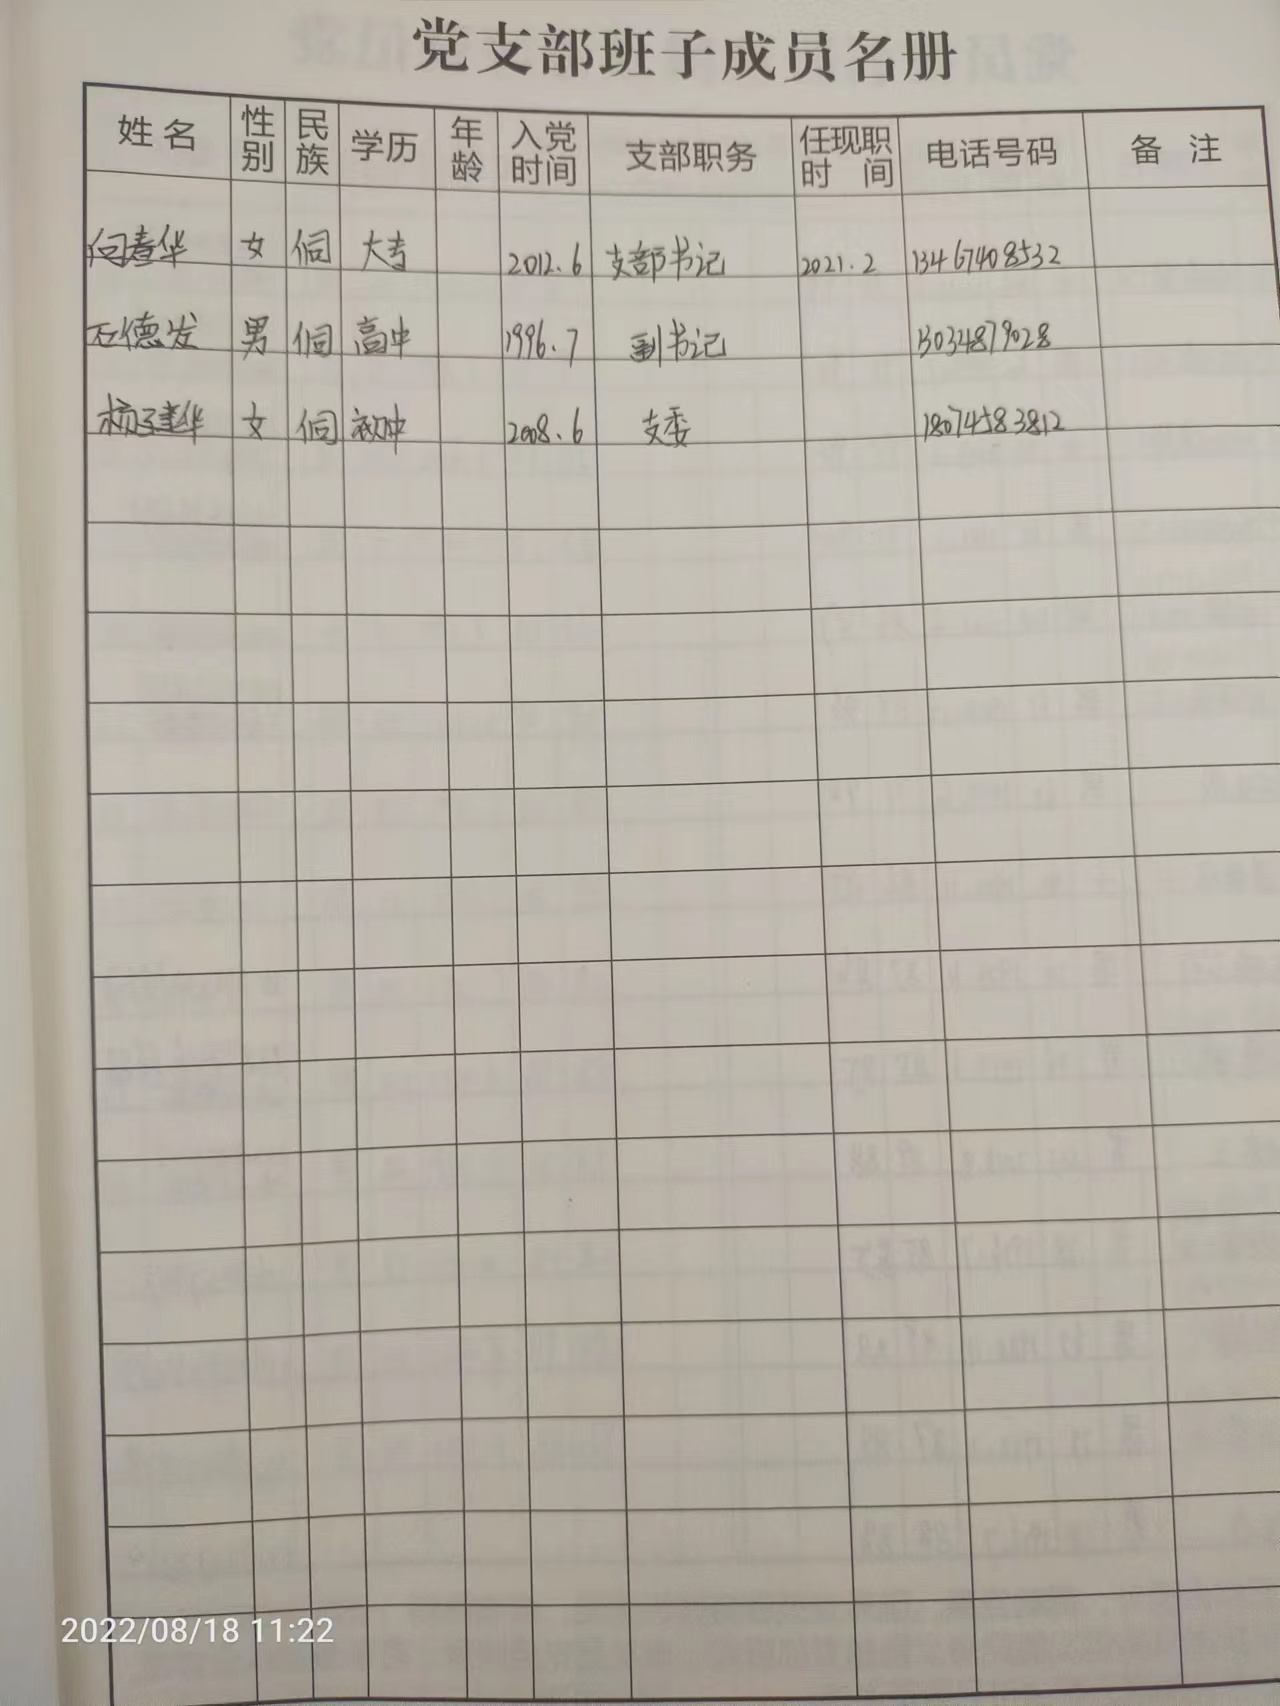 党支部班子成员名册
姓名 性别 民族 学历 年龄 入党时间 支部职务 任现职时间 电话号码 备注
向春华 女 侗 大专 2012.6 支部书记 2021.2 13467408532
石德发 男 侗 高中 1996.7 副书记 15034879028
杨建华 女 侗 初中 2008.6 支委 18074583812
2022/08/18 11:22